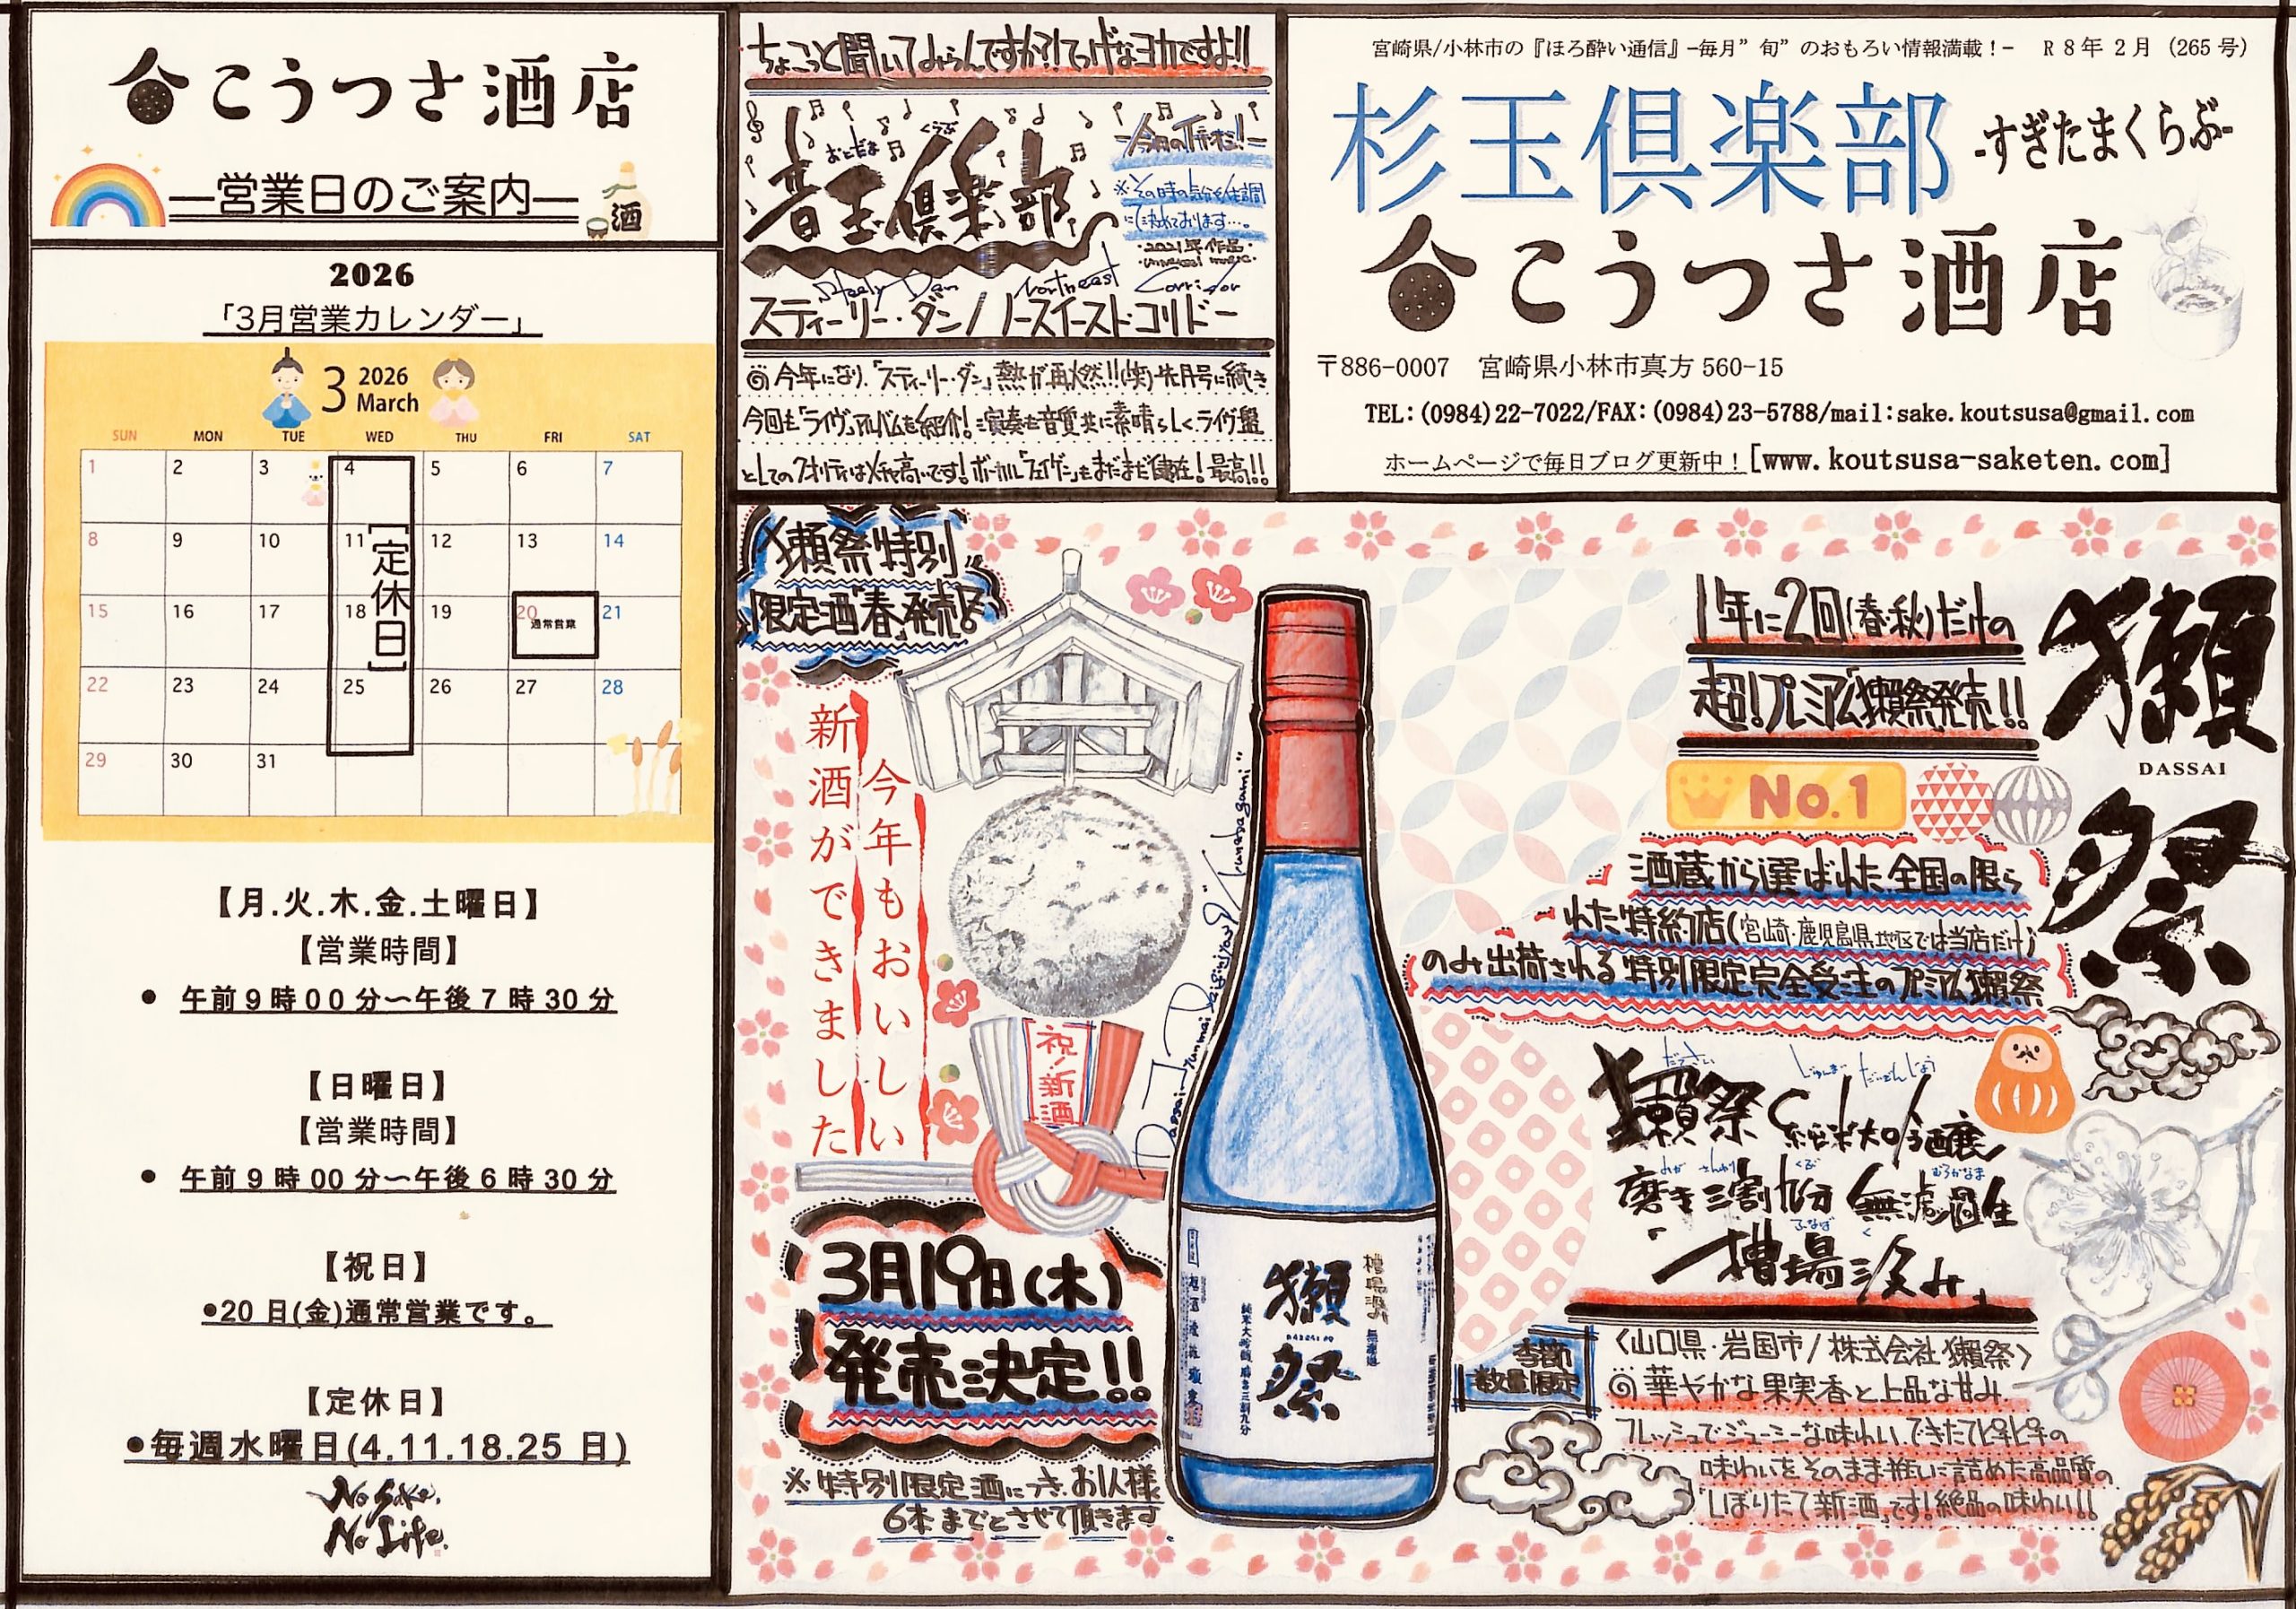 こうつさ酒店
―営業日のご案内―
酒
2026
「3月営業カレンダー」
3 2026 March
SUN MON TUE WED THU FRI SAT
1 2 3 4 5 6 7
8 9 10 11 12 13 14
15 16 17 18 19 20 21
22 23 24 25 26 27 28
29 30 31
[定休日]
通常営業
【月.火.木.金.土曜日】
【営業時間】
● 午前9時00分〜午後7時30分
【日曜日】
【営業時間】
● 午前9時00分〜午後6時30分
【祝日】
●20日(金)通常営業です。
【定休日】
●毎週水曜日(4.11.18.25 日)
No Sake.
No Life.
ちょこっと聞いてみらんですか?!てげなヨカですよ!!
おとだま くらぶ
音玉倶楽部
―今月の1枚!―
※その時の気分や体調
にて決めております…
・2021年作品・
・universal music・
Steely Dan Northeast Corridor
スティーリー・ダン/ノースイースト・コリドー
◎今年になり、「スティーリー・ダン」熱が再燃!!(笑)先月号に続き
今回も「ライヴ」アルバムを紹介!演奏も音質共に素晴らしく、ライヴ盤
としてのクオリティはメチャ高いです!ボーカル「フェイゲン」もまだまだ健在!最高!!
宮崎県/小林市の『ほろ酔い通信』−毎月”旬”のおもろい情報満載！− R8年 2月 （265 号）
杉玉倶楽部 -すぎたまくらぶ-
こうつさ酒店
〒886-0007 宮崎県小林市真方 560-15
TEL:(0984)22-7022/FAX:(0984)23-5788/mail:sake.koutsusa@gmail.com
ホームページで毎日ブログ更新中！[www.koutsusa-saketen.com]
獺祭特別
限定酒「春」発売!
今年もおいしい
新酒ができました
祝!新酒
3月19日(木)
発売決定!!
※特別限定酒につき、お1人様
6本までとさせて頂きます
獺祭
槽場汲み
無濾過
純米大吟醸 磨き三割九分
1年に2回(春・秋)だけの
超!プレミアム獺祭発売!!
獺祭
DASSAI
No.1
酒蔵から選ばれた全国の限ら
れた特約店(宮崎・鹿児島県地区では当店だけ)
のみ出荷される特別限定完全受注のプレミアム獺祭
だっさい じゅんまい だいぎんじょう
獺祭 純米大吟醸
みが さんわり くぶ むろかなま
磨き三割九分 無濾過生
ふなば く
「槽場汲み」
季節
数量限定
〈山口県・岩国市/株式会社 獺祭〉
◎華やかな果実香と上品な甘み
フレッシュでジューシーな味わい、できたてピチピチの
味わいをそのまま瓶に詰めた高品質の
「しぼりたて新酒」です!絶品の味わい!!